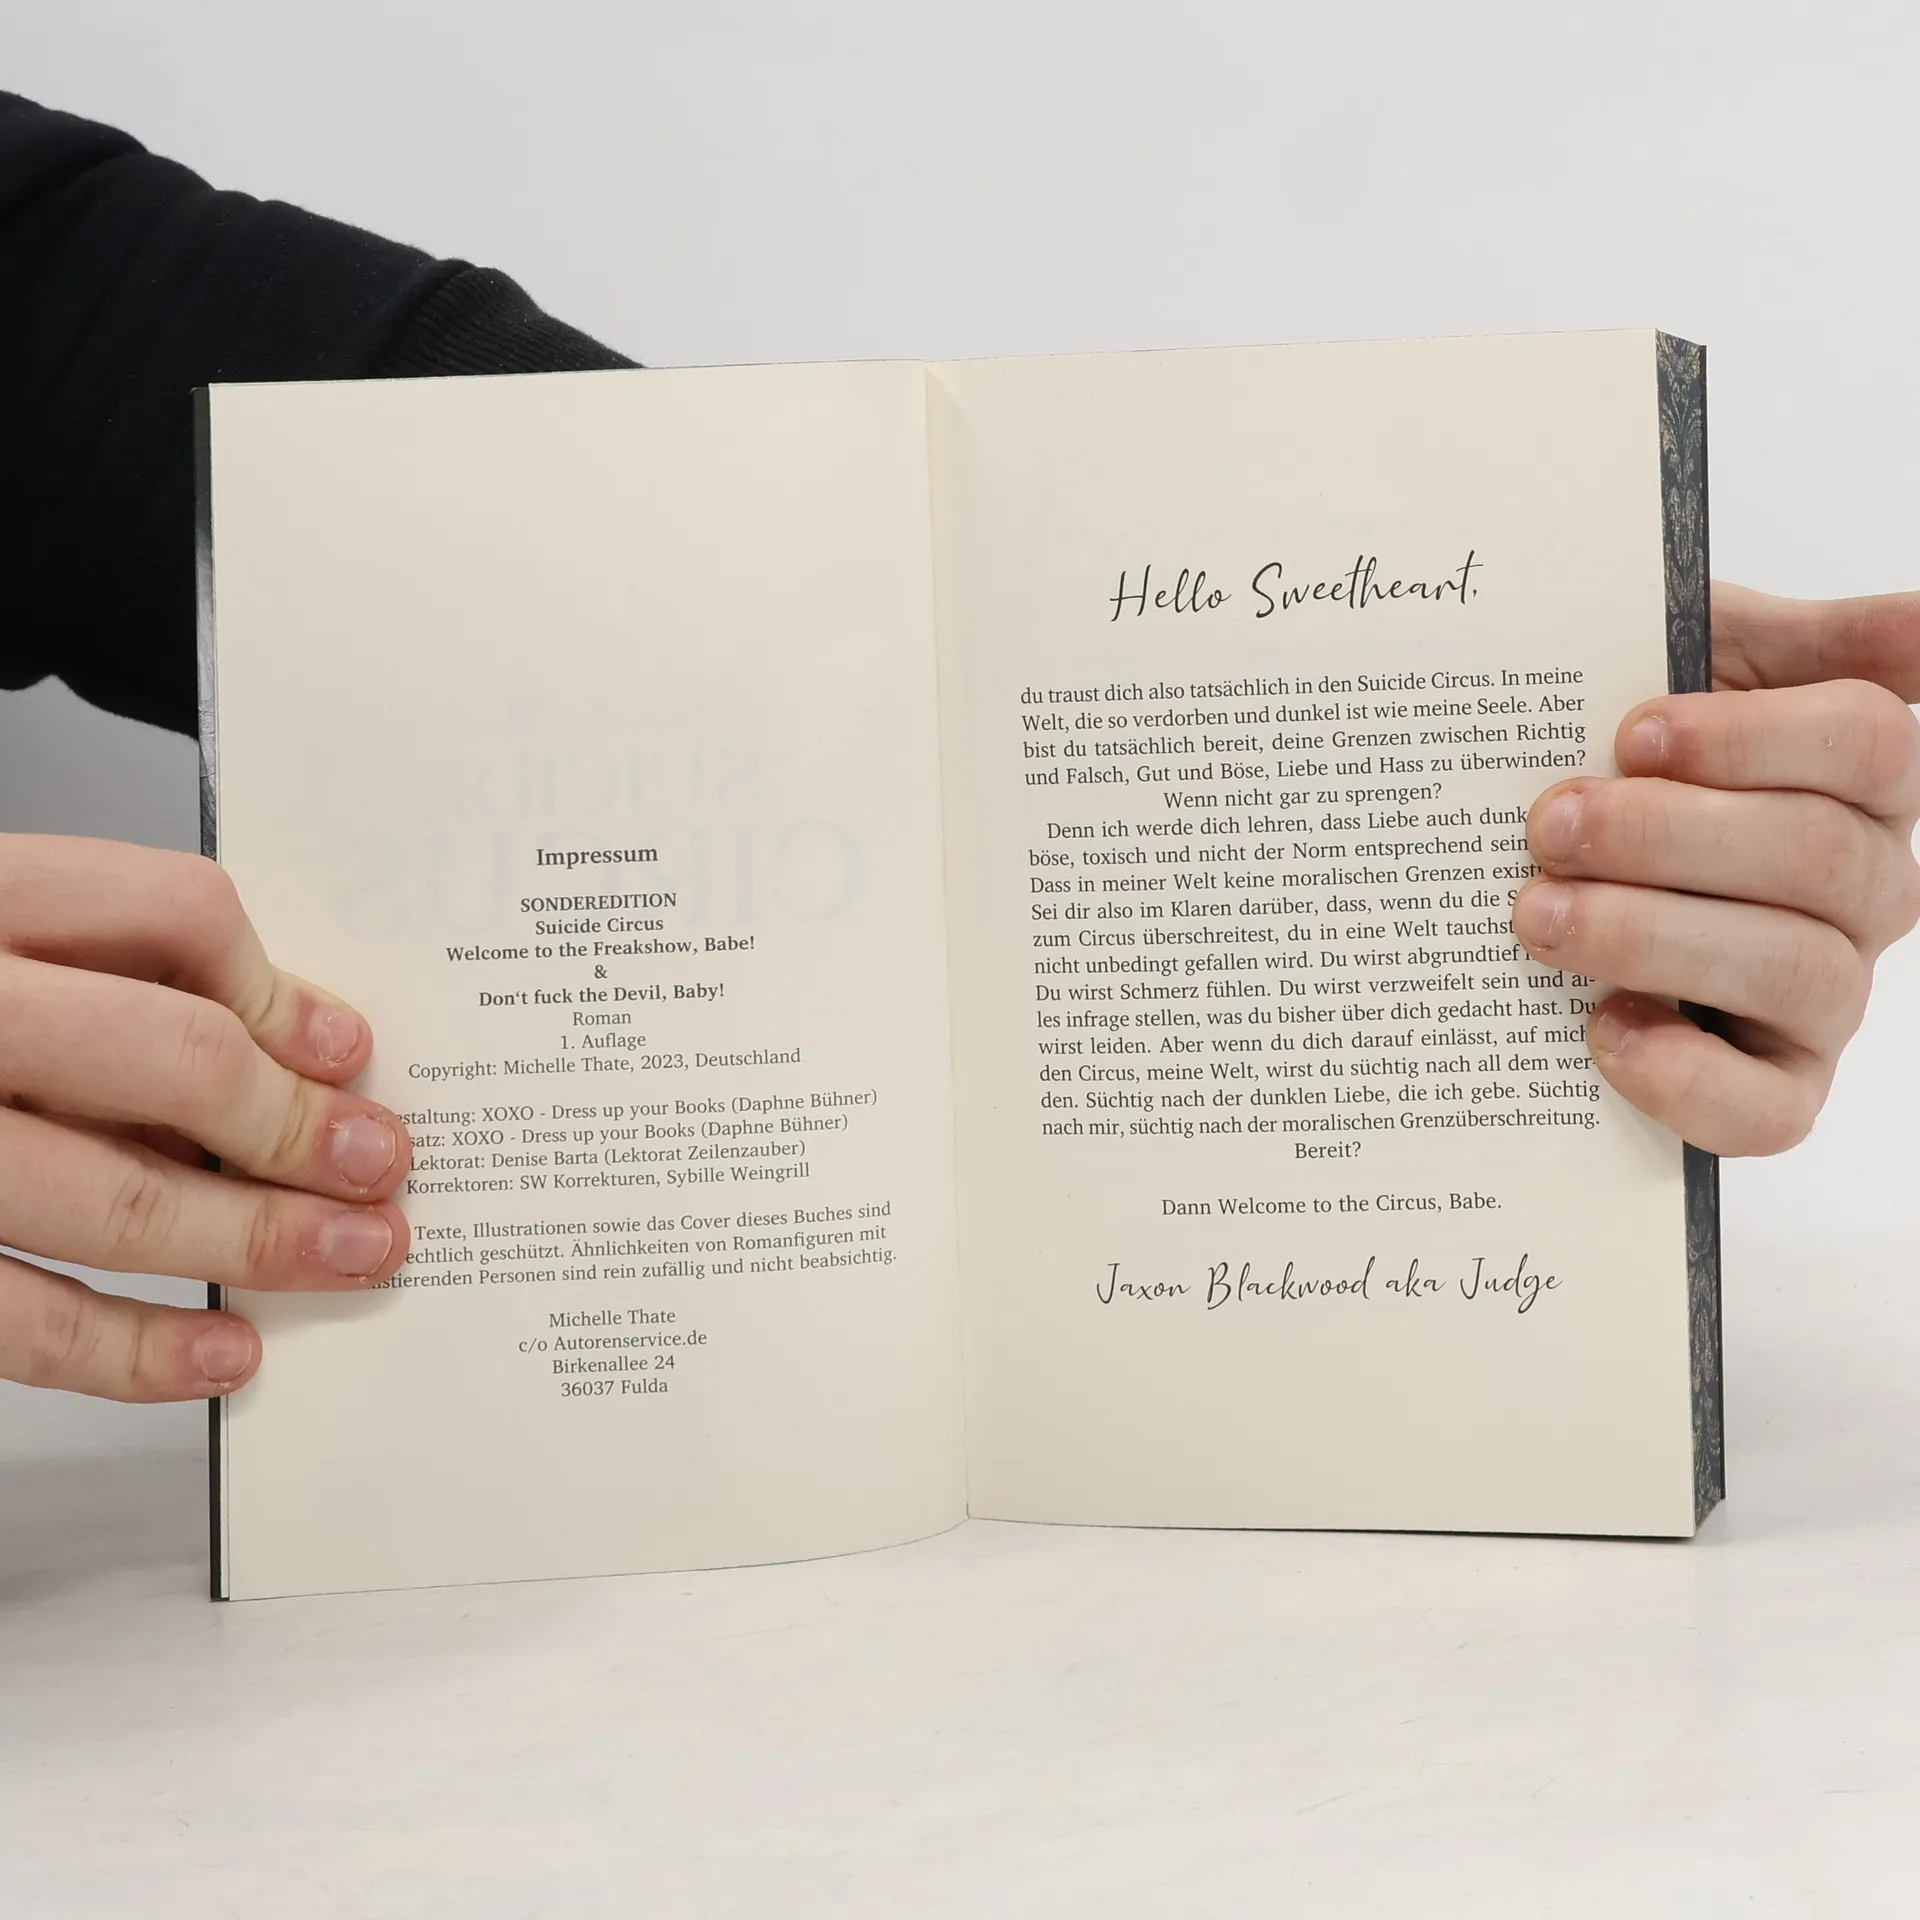 Impressum
SONDEREDITION
Suicide Circus
Welcome to the Freakshow, Babe!
&
Don't fuck the Devil, Baby!
Roman
1. Auflage
Copyright: Michelle Thate, 2023, Deutschland
XOXO - Dress up your Books (Daphne Bühner)
XOXO - Dress up your Books (Daphne Bühner)
Lektorat: Denise Barta (Lektorat Zeilenzauber)
Korrektoren: SW Korrekturen, Sybille Weingrill
Texte, Illustrationen sowie das Cover dieses Buches sind
geschützt. Ähnlichkeiten von Romanfiguren mit
Personen sind rein zufällig und nicht beabsichtig.
Michelle Thate
c/o Autorenservice.de
Birkenallee 24
36037 Fulda
Hello Sweetheart,
du traust dich also tatsächlich in den Suicide Circus. In meine
Welt, die so verdorben und dunkel ist wie meine Seele. Aber
bist du tatsächlich bereit, deine Grenzen zwischen Richtig
und Falsch, Gut und Böse, Liebe und Hass zu überwinden?
Wenn nicht gar zu sprengen?
Denn ich werde dich lehren, dass Liebe auch
böse, toxisch und nicht der Norm entsprechend sein
Dass in meiner Welt keine moralischen Grenzen
Sei dir also im Klaren darüber, dass, wenn du die
zum Circus überschreitest, du in eine Welt tauchst
nicht unbedingt gefallen wird. Du wirst abgrundtief
Du wirst Schmerz fühlen. Du wirst verzweifelt sein und al-
les infrage stellen, was du bisher über dich gedacht hast. Du
wirst leiden. Aber wenn du dich darauf einlässt, auf mich
den Circus, meine Welt, wirst du süchtig nach all dem wer-
den. Süchtig nach der dunklen Liebe, die ich gebe. Süchtig
nach mir, süchtig nach der moralischen Grenzüberschreitung.
Bereit?
Dann Welcome to the Circus, Babe.
Jaxon Blackwood aka Judge